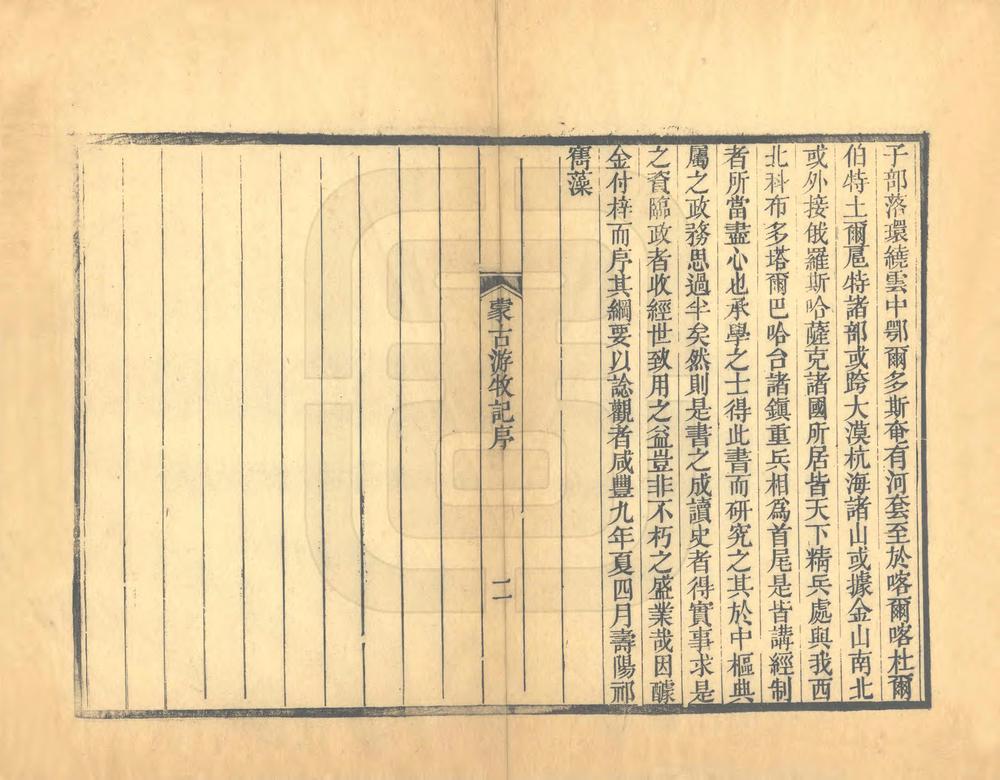 子部落環繞雲中鄂爾多斯奄有河套至於喀爾喀杜爾
伯特土爾扈特諸部或跨大漠杭海諸山或據金山南北
或外接俄羅斯哈薩克諸國所居皆天下精兵處與我西
北科布多塔爾巴哈台諸鎮重兵相爲首尾是皆講經制
者所當盡心也承學之士得此書而研究之其於中樞典
屬之政務思過半矣然則是書之成讀史者得實事求是
之資臨政者收經世致用之益豈非不朽之盛業哉因醵
金付梓而序其綱要以諗觀者咸豐九年夏四月壽陽祁
寯藻
蒙古游牧記序
二